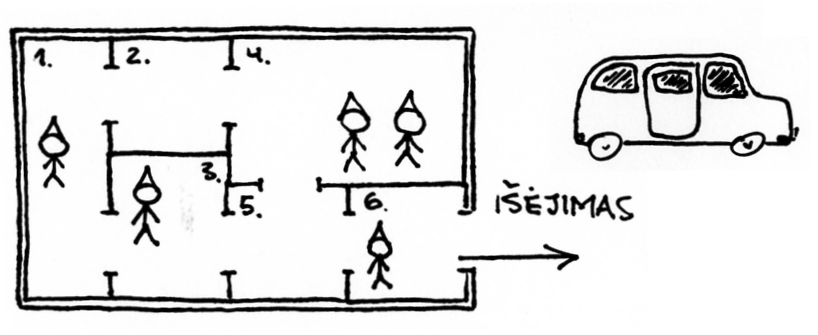 1. 2. 4.
3.
5. 6.
IŠĖJIMAS